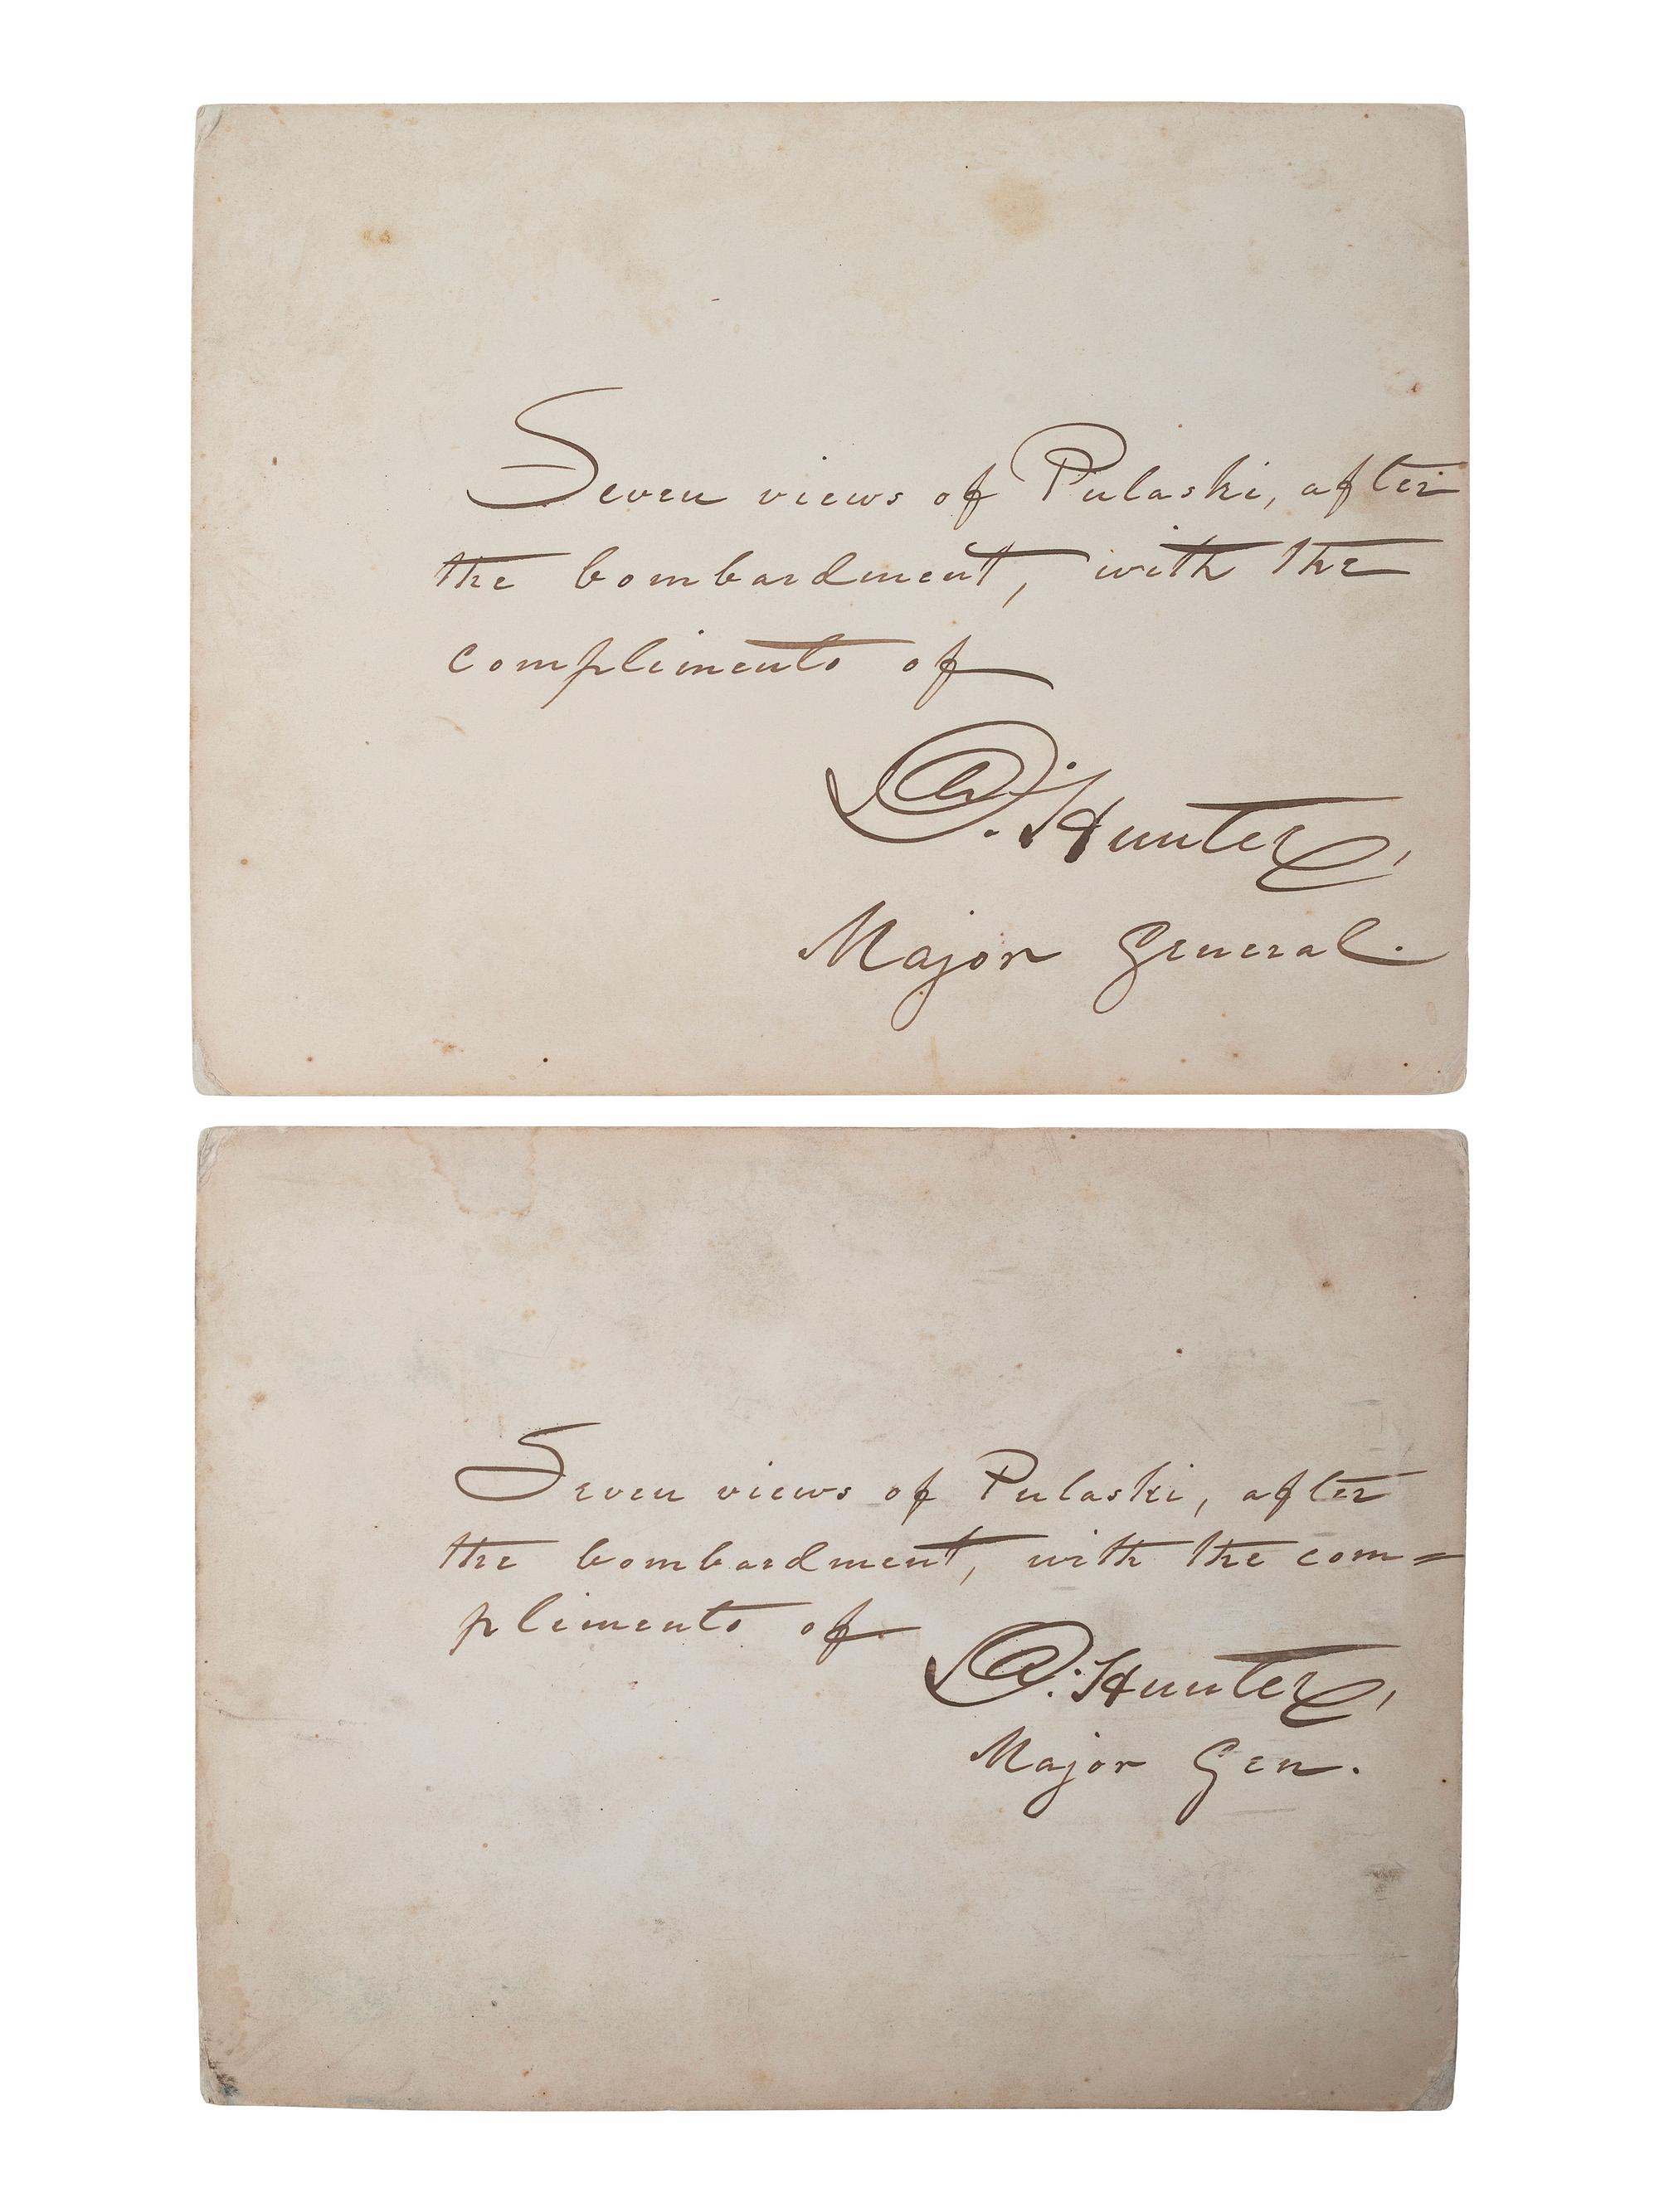 Seven views of Pulaski, after
the bombardment, with the
compliments of
D. Hunter,
Major General.
Seven views of Pulaski, after
the bombardment, with the com=
pliments of
D. Hunter,
Major Gen.